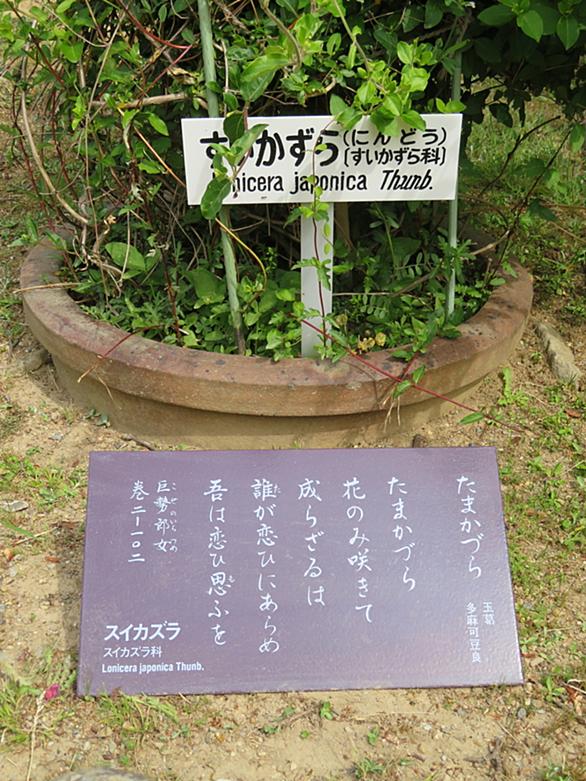 すいかずら(にんどう)
〔すいかずら科〕
Lonicera japonica Thunb.
たまかづら
玉葛
多麻可豆良
たまかづら
花のみ咲きて
成らざるは
誰が恋ひにあらめ
た
吾は恋ひ思ふを
も
巨勢郎女
こせのいらつめ
巻二―一〇二
スイカズラ
スイカズラ科
Lonicera japonica Thunb.